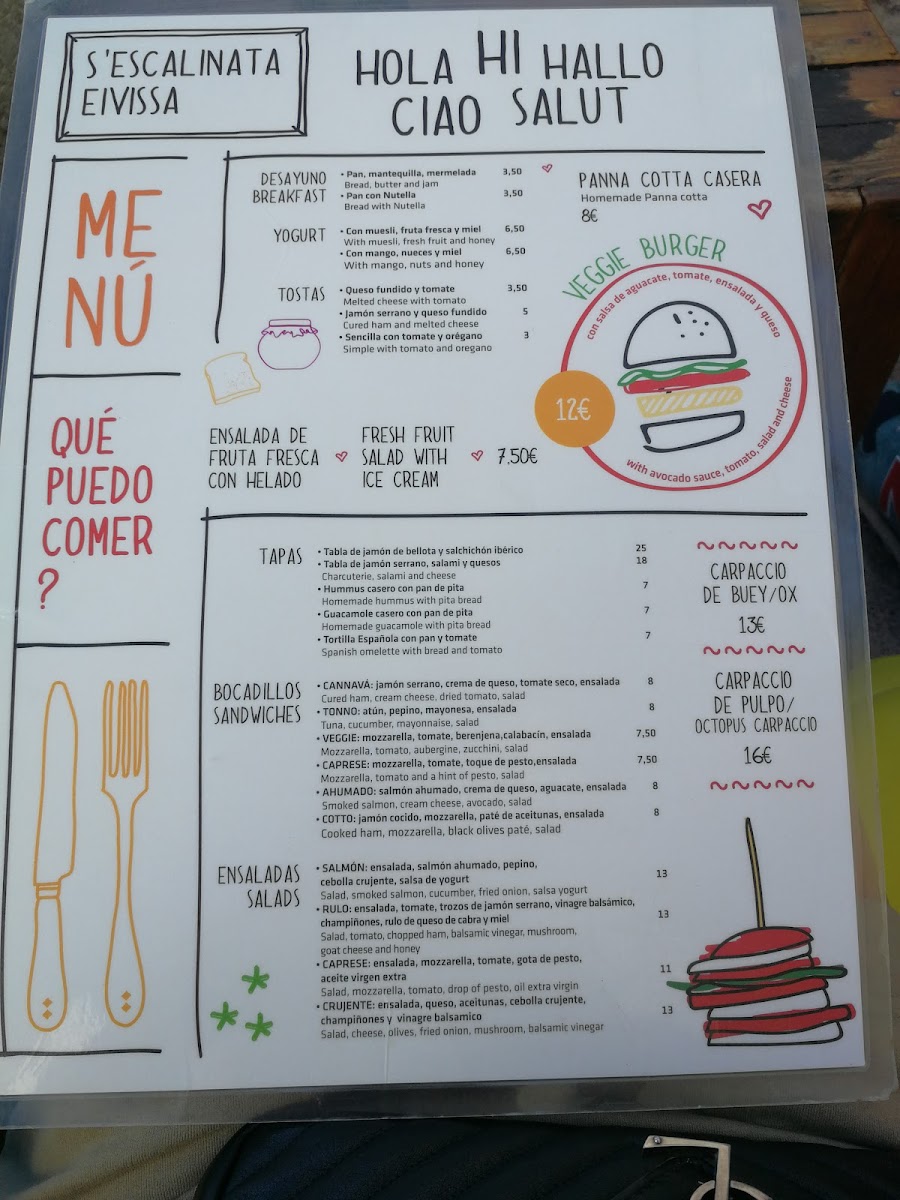 S'ESCALINATA
EIVISSA
HOLA HI HALLO
CIAO SALUT
ME
NÚ
QUÉ
PUEDO
COMER
?
DESAYUNO
BREAKFAST
• Pan, mantequilla, mermelada 3,50
Bread, butter and jam
• Pan con Nutella 3,50
Bread with Nutella
YOGURT
• Con muesli, fruta fresca y miel 6,50
With muesli, fresh fruit and honey
• Con mango, nueces y miel 6,50
With mango, nuts and honey
TOSTAS
• Queso fundido y tomate 3,50
Melted cheese with tomato
• Jamón serrano y queso fundido 5
Cured ham and melted cheese
• Sencilla con tomate y orégano 3
Simple with tomato and oregano
PANNA COTTA CASERA
Homemade Panna cotta
8€
VEGGIE BURGER
con salsa de aguacate, tomate, ensalada y queso
12€
with avocado sauce, tomato, salad and cheese
ENSALADA DE
FRUTA FRESCA
CON HELADO
FRESH FRUIT
SALAD WITH
ICE CREAM
7,50€
TAPAS
• Tabla de jamón de bellota y salchichón ibérico 25
• Tabla de jamón serrano, salami y quesos 18
Charcuterie, salami and cheese
• Hummus casero con pan de pita 7
Homemade hummus with pita bread
• Guacamole casero con pan de pita 7
Homemade guacamole with pita bread
• Tortilla Española con pan y tomate 7
Spanish omelette with bread and tomato
BOCADILLOS
SANDWICHES
• CANNAVÁ: jamón serrano, crema de queso, tomate seco, ensalada 8
Cured ham, cream cheese, dried tomato, salad
• TONNO: atún, pepino, mayonesa, ensalada 8
Tuna, cucumber, mayonnaise, salad
• VEGGIE: mozzarella, tomate, berenjena,calabacín, ensalada 7,50
Mozzarella, tomato, aubergine, zucchini, salad
• CAPRESE: mozzarella, tomate, toque de pesto,ensalada 7,50
Mozzarella, tomato and a hint of pesto, salad
• AHUMADO: salmón ahumado, crema de queso, aguacate, ensalada 8
Smoked salmon, cream cheese, avocado, salad
• COTTO: jamón cocido, mozzarella, paté de aceitunas, ensalada 8
Cooked ham, mozzarella, black olives paté, salad
ENSALADAS
SALADS
• SALMÓN: ensalada, salmón ahumado, pepino,
cebolla crujente, salsa de yogurt 13
Salad, smoked salmon, cucumber, fried onion, salsa yogurt
• RULO: ensalada, tomate, trozos de jamón serrano, vinagre balsámico,
champiñones, rulo de queso de cabra y miel 13
Salad, tomato, chopped ham, balsamic vinegar, mushroom,
goat cheese and honey
• CAPRESE: ensalada, mozzarella, tomate, gota de pesto,
aceite virgen extra 11
Salad, mozzarella, tomato, drop of pesto, oil extra virgin
• CRUJENTE: ensalada, queso, aceitunas, cebolla crujente,
champiñones y vinagre balsamico 13
Salad, cheese, olives, fried onion, mushroom, balsamic vinegar
CARPACCIO
DE BUEY/OX
13€
CARPACCIO
DE PULPO/
OCTOPUS CARPACCIO
16€